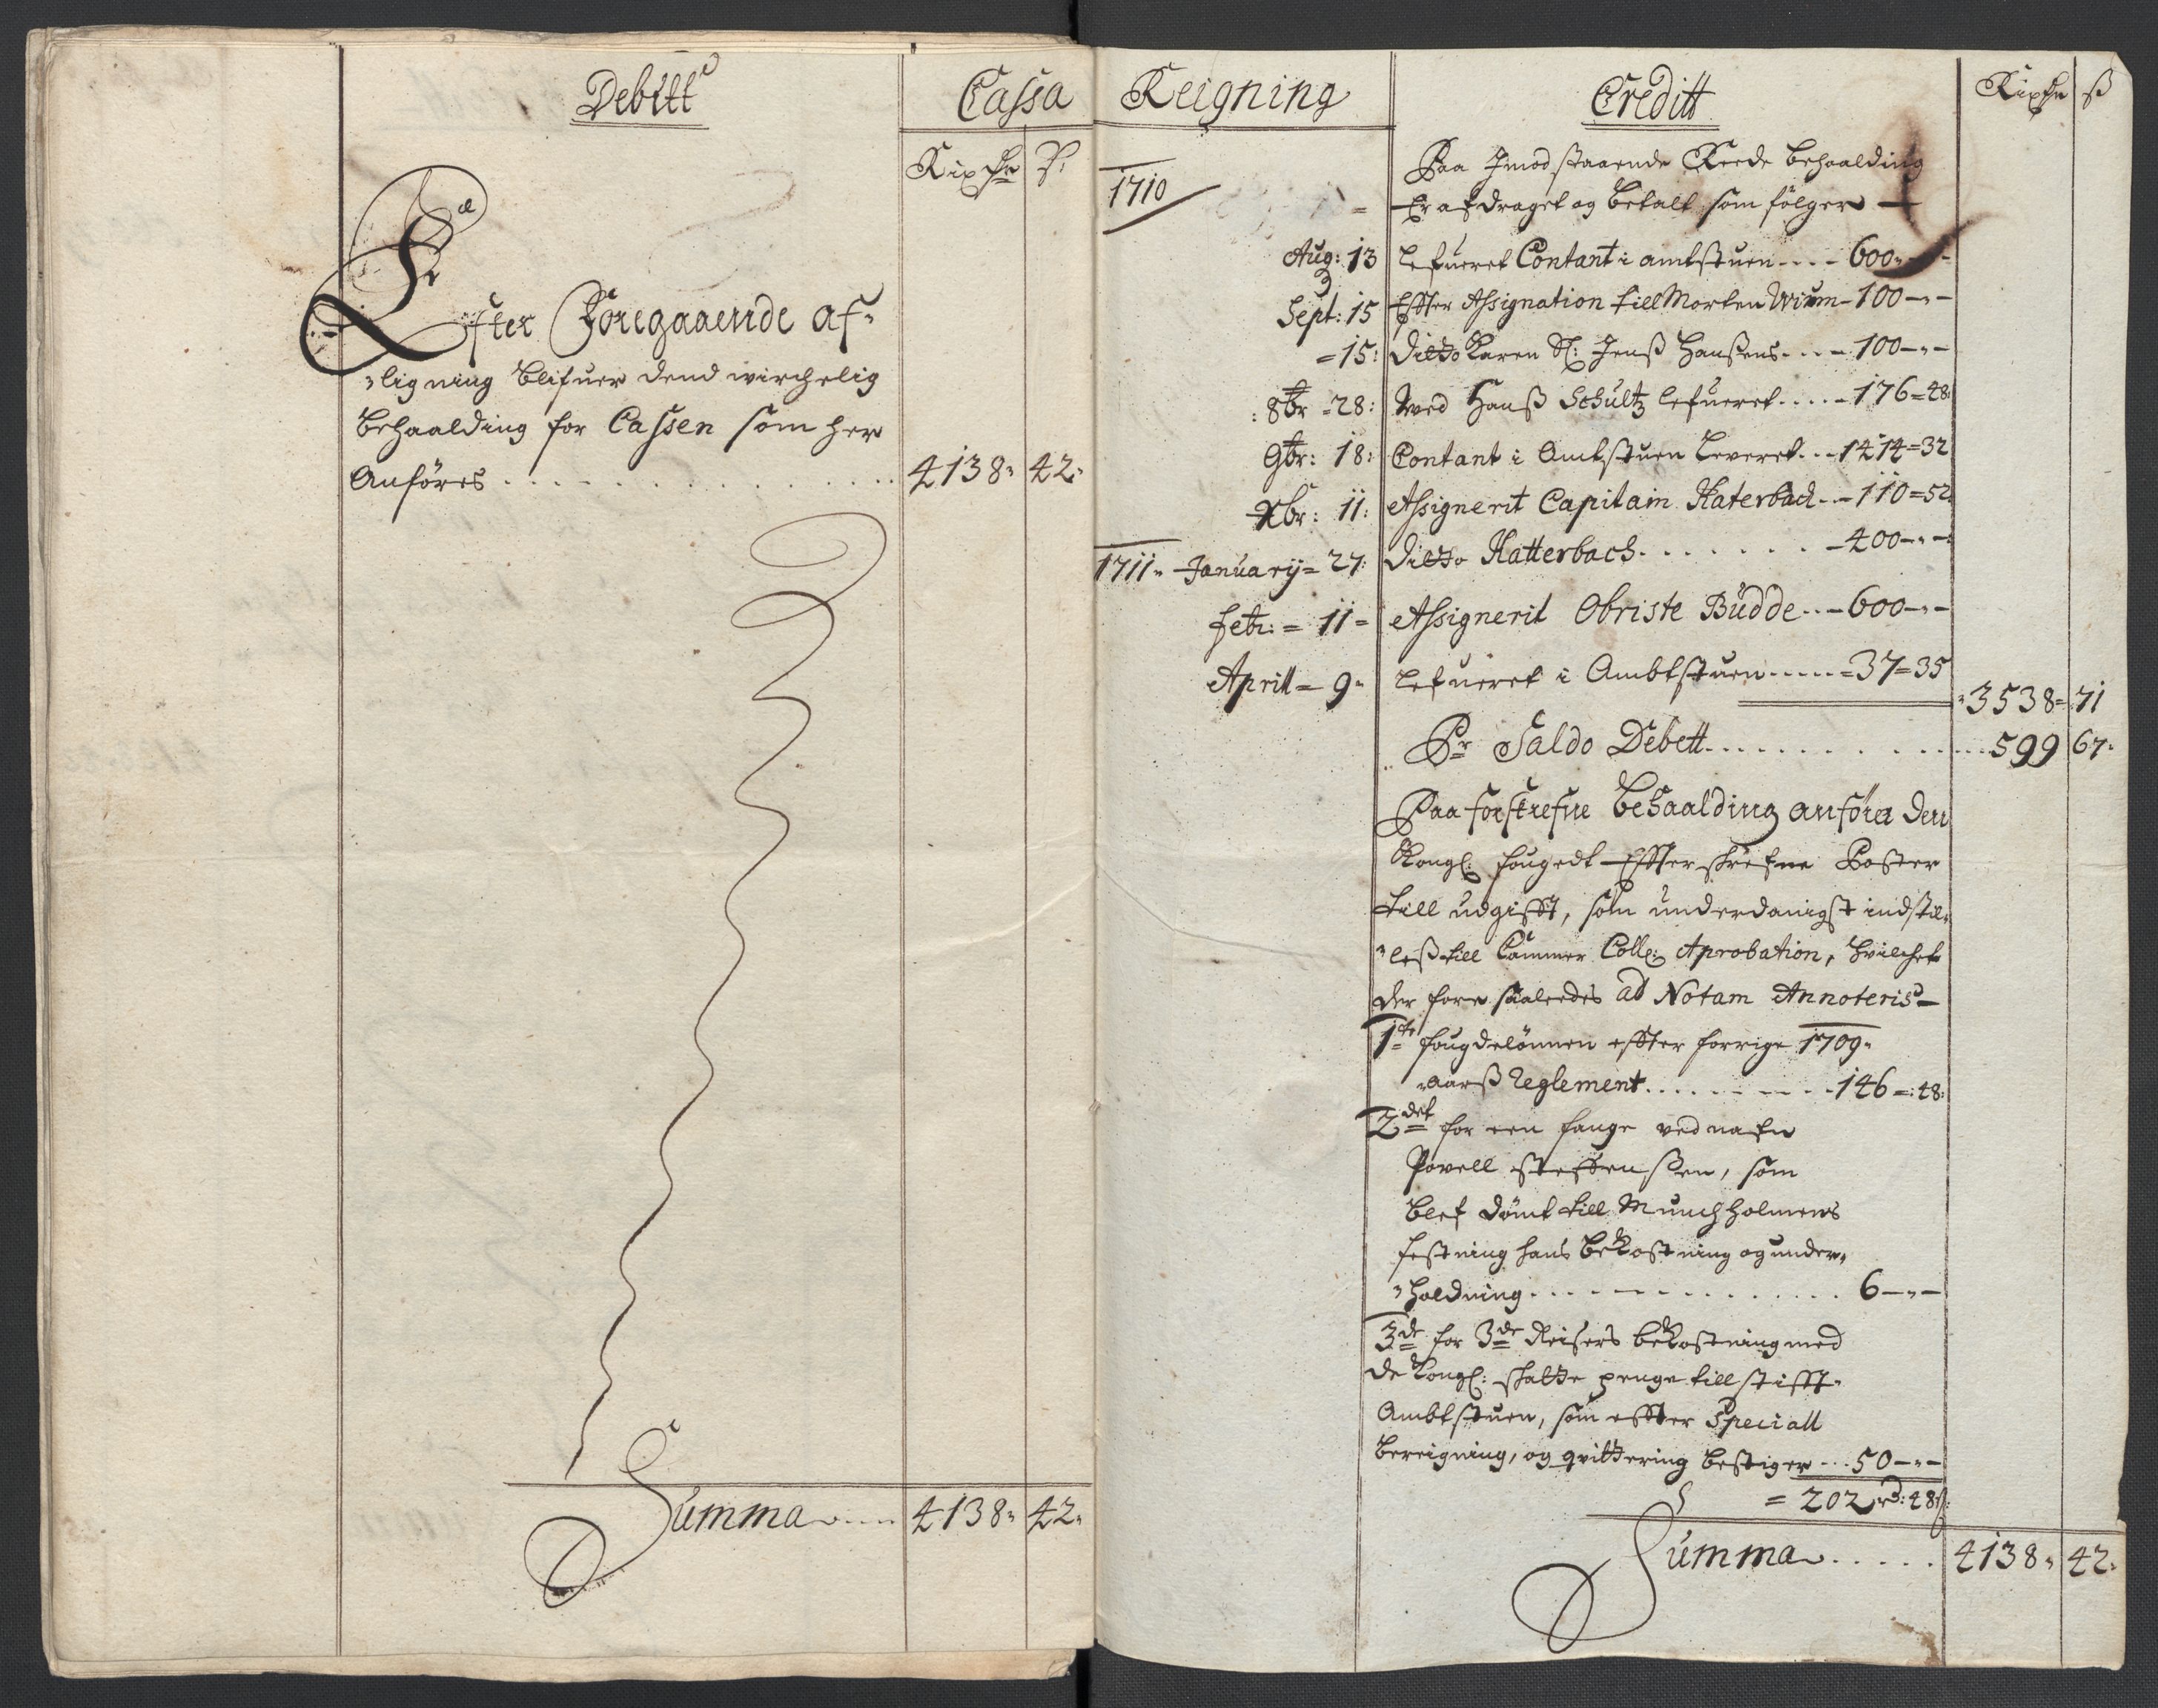 Debitt
Cassa
Rixdr ß
Efter Foregaaende af-
ligning blifuer dend wirchelig
behaalding for Cassen som her
Anföres 4138 42
Summa 4138 42
Reigning
Creditt
Rixdr ß
1710
Paa Imodstaaende Reede behaalding
Er afdraget og betalt som fölger
Aug: 13 Lefueret Contant i amtstuen 600 - -
Sept: 15 Effter Assignation till Morten Wium 100 - -
= 15: Ditto Karen Sl: Jenß Hanßens 100 - -
8br = 28: Wed Hanß Schultz lefueret 176 = 48:
9br: 18: Contant i Amtstuen Leveret 1414 = 32
Xbr: 11: Assignerit Capitain Katerbach 110 = 52
1711 January = 27: Ditto Katterbach 400 - -
Febr: = 11 = Assignerit Obriste Büdde 600 - -
Aprill = 9 Lefueret i Ambtstuen 37 = 35
3538 = 71
Pr Saldo Debett 599 67
Paa forskrefne behaalding anförer den
Kongl: fougedt Effterskrefne Poster
till udgifft, som underdanigst indstil-
leß till Cammer Coll: Aprobation, hvilchet
der fore saaledes ad Notam Annoteris
1te fougdelönnen effter forrige 1709
aarß Reglement 146 =: 48:
2det for een fange ved nafn
Povell Steffenßen, som
blef dömt till Munchholmens
festning hans bekostning og under-
holdning 6 - -
3de for 3de Reisers bekostning med
de Kongl: skatte penge till stifft-
Ambtstuen, som effter Speciall
bereigning, og qvittering bestiger 50 - -
= 202 rd: 48 ß:
Summa 4138 42